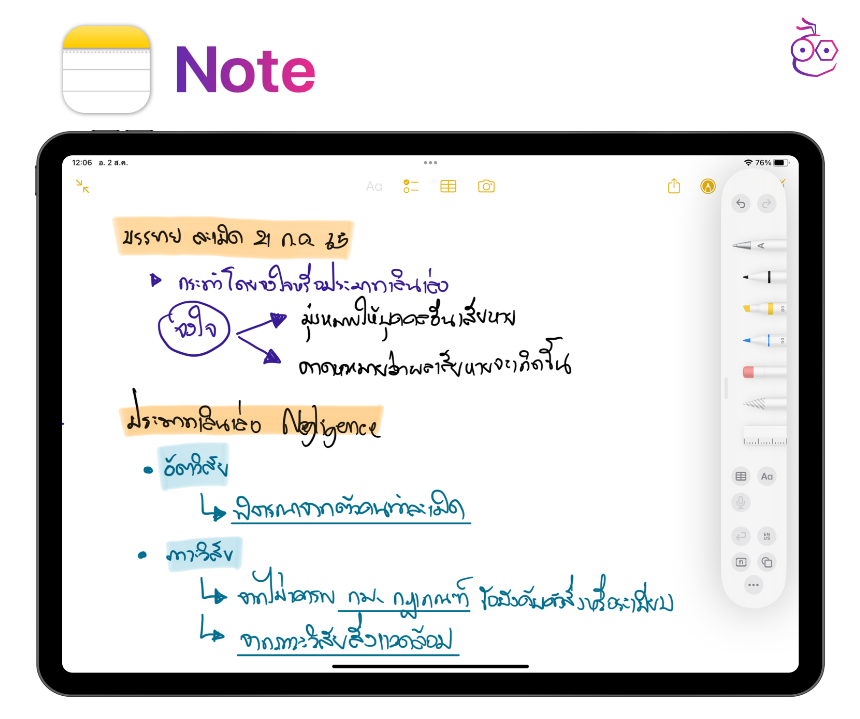 Note
12:06 อ. 2 ส.ค.
76%
Aa
บรรยาย ละเมิด 21 ก.ค. 65
กระทำโดยจงใจหรือประมาทเลินเล่อ
จงใจ
มุ่งหมายให้บุคคลอื่นเสียหาย
คาดหมายว่าผลเสียหายจะเกิดขึ้น
ประมาทเลินเล่อ Negligence
อัตวิสัย
พิจารณาจากตัวคนทำละเมิด
ภาวะวิสัย
จากไม่เคารพ กม. กฎเกณฑ์ ข้อบังคับคำสั่งหรือระเบียบ
จากภาวะวิสัยสิ่งแวดล้อม
A
Aa